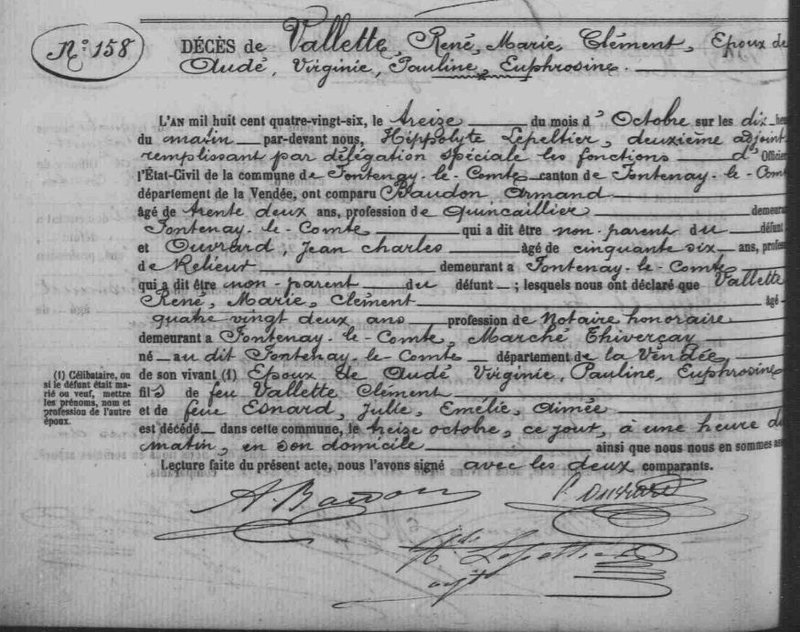 N.º 158
DÉCÈS de Vallette, René, Marie, Clément, Epoux de
Audé, Virginie, Pauline, Euphrosine.
L'AN mil huit cent quatre-vingt-six, le treize du mois d'Octobre sur les dix
du matin par-devant nous, Hippolyte Lepeltier, deuxième adjoint
remplissant par délégation spéciale les fonctions d'Officier
l'État-Civil de la commune de Fontenay-le-Comte canton de Fontenay-le-Comte
département de la Vendée, ont comparu Baudon, Armand
âgé de trente deux ans, profession de Quincaillier demeurant
Fontenay-le-Comte qui a dit être non-parent du défunt
et Ouvrard, Jean Charles âgé de cinquante six ans, profes
de Relieur demeurant a Fontenay-le-Comte
qui a dit être non-parent du défunt ; lesquels nous ont déclaré que Vallette
René, Marie, Clément âgé
quatre vingt deux ans profession de Notaire honoraire
demeurant a Fontenay-le-Comte, Marché Thiverçay
né au dit Fontenay-le-Comte département de la Vendée
(1) Célibataire, ou
si le défunt était ma-
rié ou veuf, mettre
les prénoms, nom et
profession de l'autre
époux.
de son vivant (1) Epoux de Audé Virginie, Pauline, Euphrosine
fils de feu Vallette Clément
et de feue Esnard, Julie, Emélie, Aimée
est décédé dans cette commune, le treize octobre, ce jour, à une heure du
matin, en son domicile ainsi que nous nous en sommes
Lecture faite du présent acte, nous l'avons signé avec les deux comparants.
A. Baudon
Ouvrard
H. Lepeltier
adjt